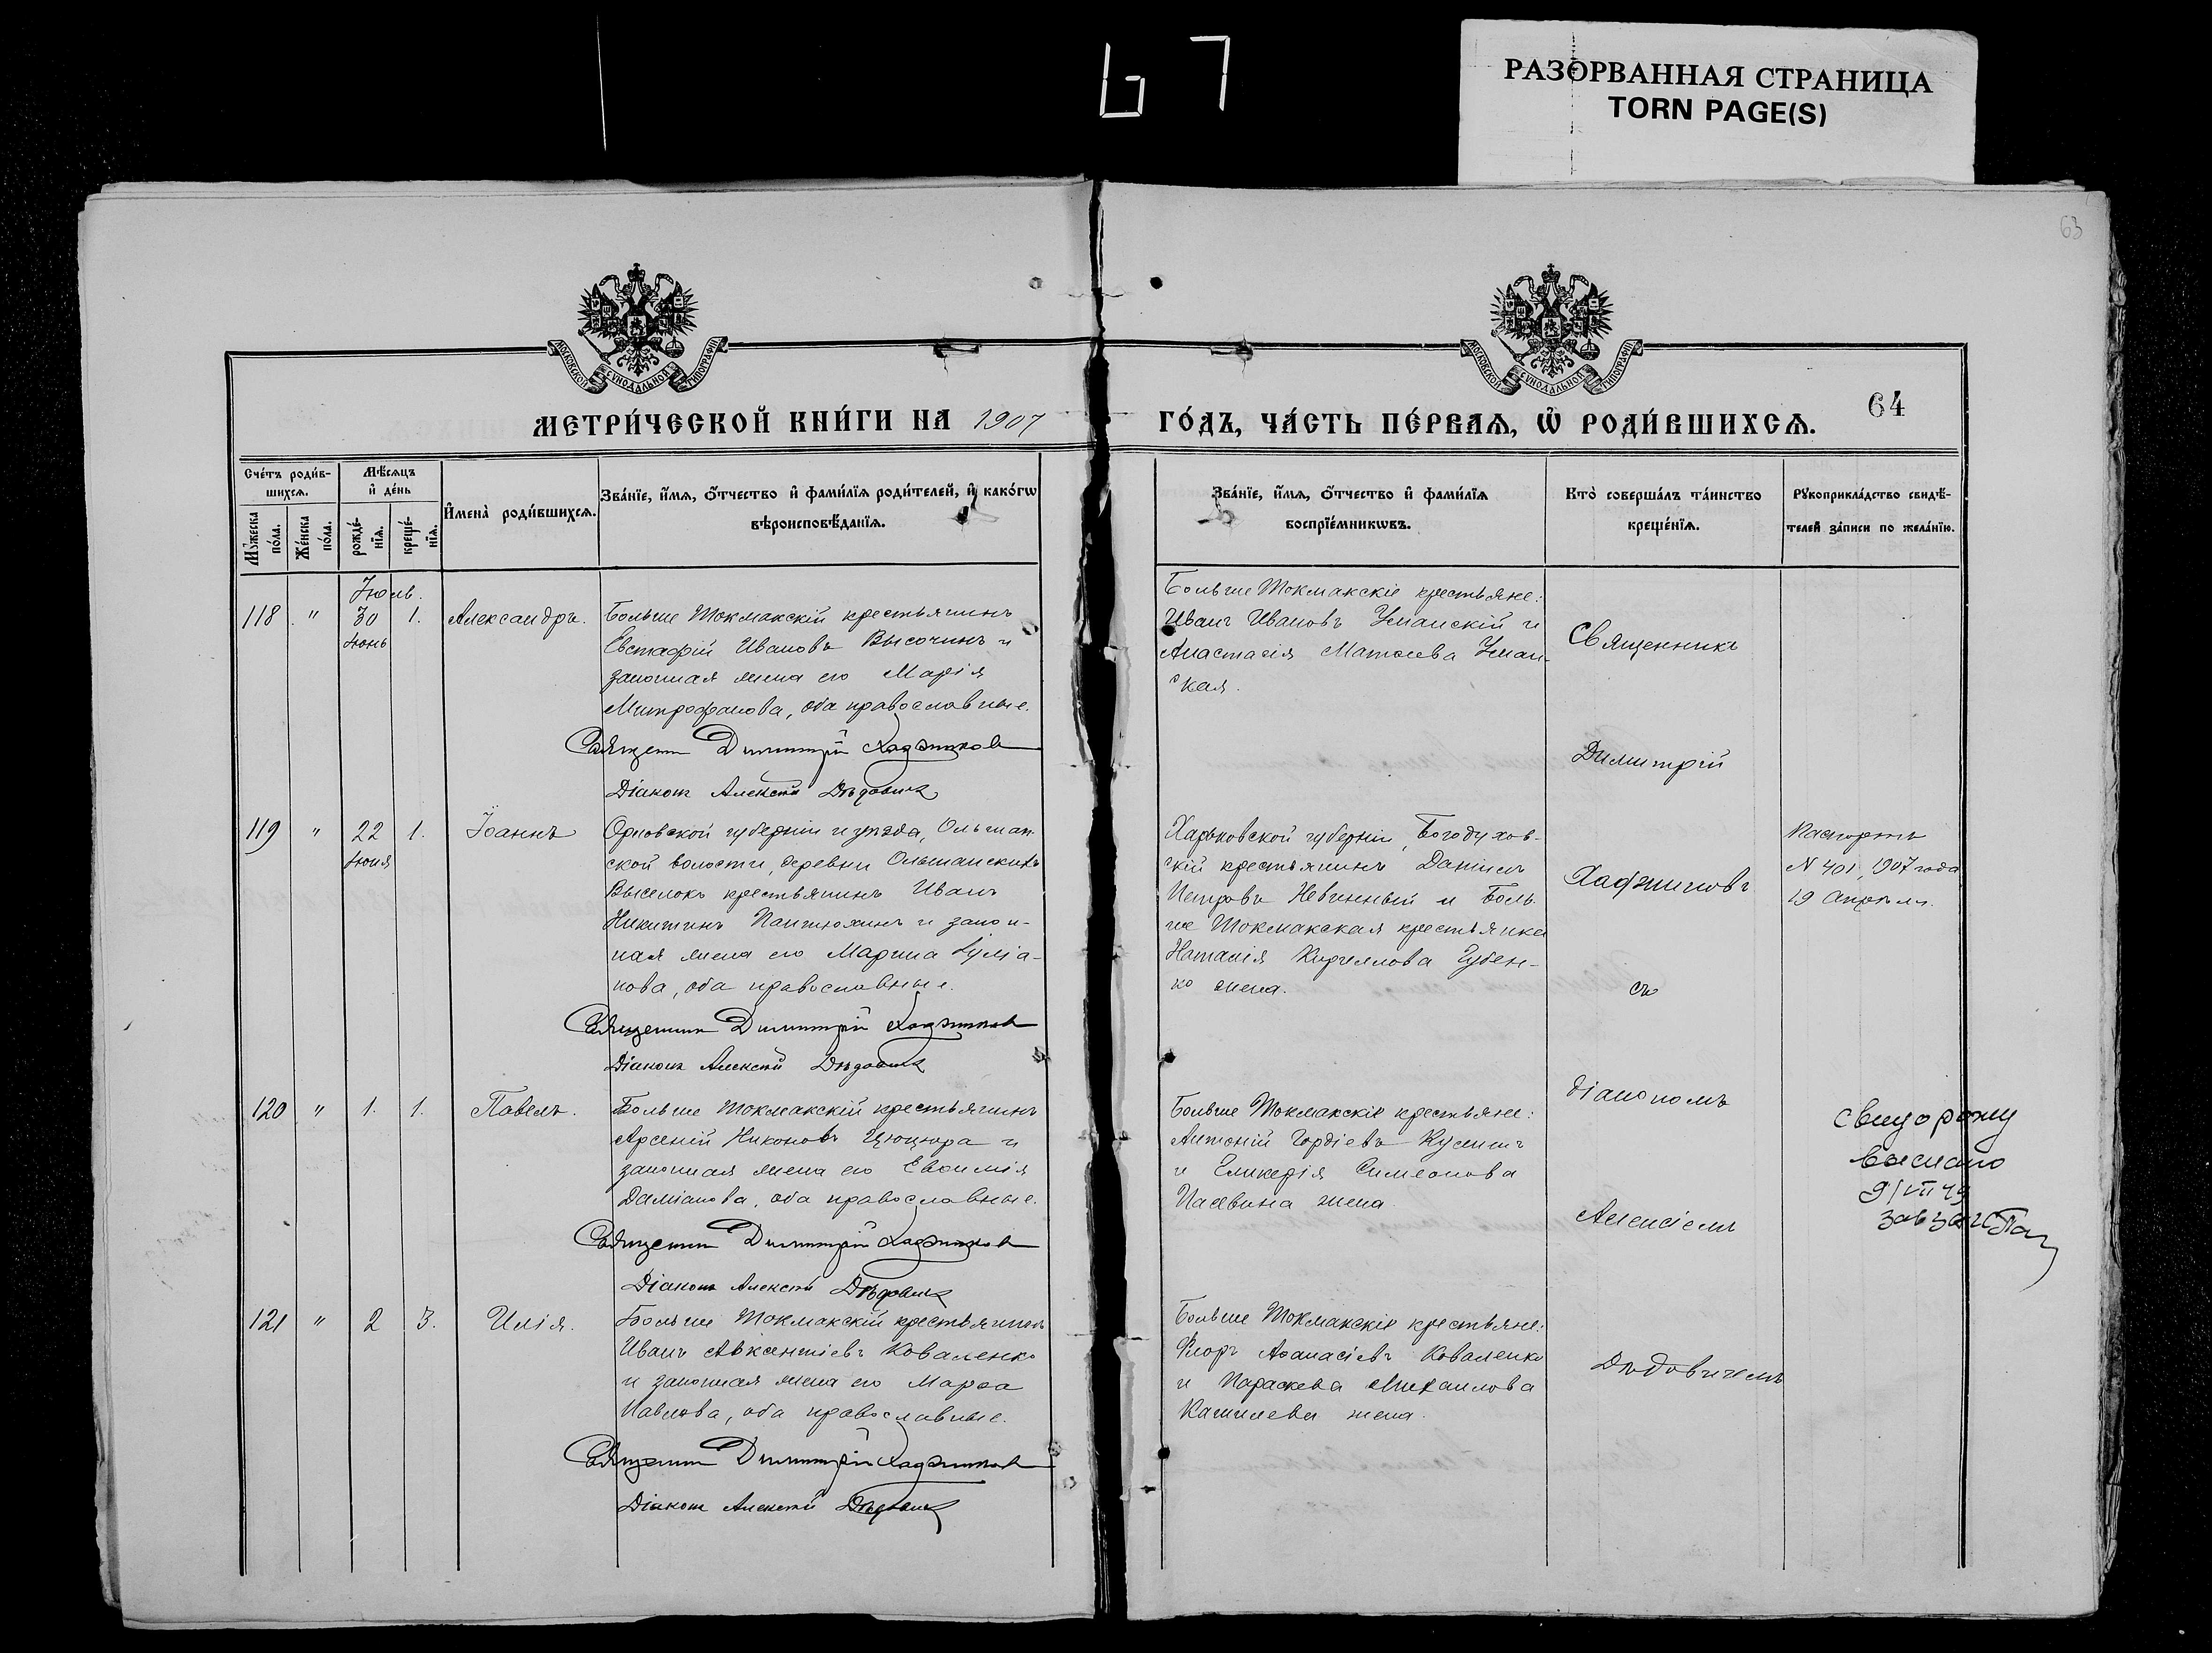 РАЗОРВАННАЯ СТРАНИЦА
TORN PAGE(S)
67
63
МОСКОВСКОЙ СѴНОДАЛЬНОЙ ТИПОГРАФІИ
МОСКОВСКОЙ СѴНОДАЛЬНОЙ ТИПОГРАФІИ
МЕТРИ́ЧЕСКОЙ КНИ́ГИ НА 1907 ГО́ДЪ, ЧА́СТЬ ПЕ́РВАѦ, Ѡ҆ РОДИ́ВШИХСѦ. 64
Сче́тъ роди́вшихсѧ.
Мѣ́сѧцъ и҆ де́нь
Мꙋ́жеска по́ла.
Же́нска по́ла.
рожде́нїѧ.
креще́нїѧ.
И҆мена̀ роди́вшихсѧ.
Зва́нїе, и҆́мѧ, ѻ҆́тчество и҆ фами́лїѧ роди́телей, и҆ како́гѡ
вѣроисповѣ́данїѧ.
Зва́нїе, и҆́мѧ, ѻ҆́тчество и҆ фами́лїѧ
воспрїе́мникѡвъ.
Кто̀ соверша́лъ та́инство
креще́нїѧ.
Рꙋкоприкла́дство свидѣ́-
телей за́писи по жела́нїю.
Іюль.
118 " 30 1. Александръ.
Іюнь
Больше Токмакскій крестьянинъ
Евстафій Ивановъ Высочинъ и
законная жена его Марія
Митрофанова, оба православные.
Священникъ Димитрій Хаджиновъ
Діаконъ Алексѣй Дѣдовичъ
Больше Токмакскіе крестьяне:
Иванъ Ивановъ Уманскій и
Анастасія Матѳеева Уман-
ская.
Священникъ
Димитрій
Хаджиновъ
съ
діакономъ
Алексіемъ
Дѣдовичемъ
119 " 22 1. Іоаннъ
Іюня
Орловской губерніи и уѣзда, Ольшан-
ской волости, деревни Ольшанскихъ
Выселокъ крестьянинъ Иванъ
Никитинъ Пантюхинъ и закон-
ная жена его Марина Іуліа-
нова, оба православные.
Священникъ Димитрій Хаджиновъ
Діаконъ Алексѣй Дѣдовичъ
Харьковской губерніи, Богодухов-
скій крестьянинъ Даніилъ
Петровъ Невинный и Боль-
ше Токмакская крестьянка
Наталія Кириллова Губен-
ко жена.
Паспортъ
N 401, 1907 года
19 Апрѣля.
120 " 1. 1. Павелъ.
Больше Токмакскій крестьянинъ
Арсеній Никоновъ Цюцюра и
законная жена его Евѳимія
Даміанова, оба православные.
Священникъ Димитрій Хаджиновъ
Діаконъ Алексѣй Дѣдовичъ
Больше Токмакскіе крестьяне:
Антоній Гордіевъ
и Гликерія Симеонова
жена
выслано
9/VII 49
121 " 2 3. Илія.
Больше Токмакскій крестьянинъ
Иванъ Авксентіевъ Коваленко
и законная жена его Марѳа
Павлова, оба православные.
Священникъ Димитрій Хаджиновъ
Діаконъ Алексѣй Дѣдовичъ
Больше Токмакскіе крестьяне:
Флоръ Аѳанасіевъ Коваленко
и Параскева Михаилова
жена.